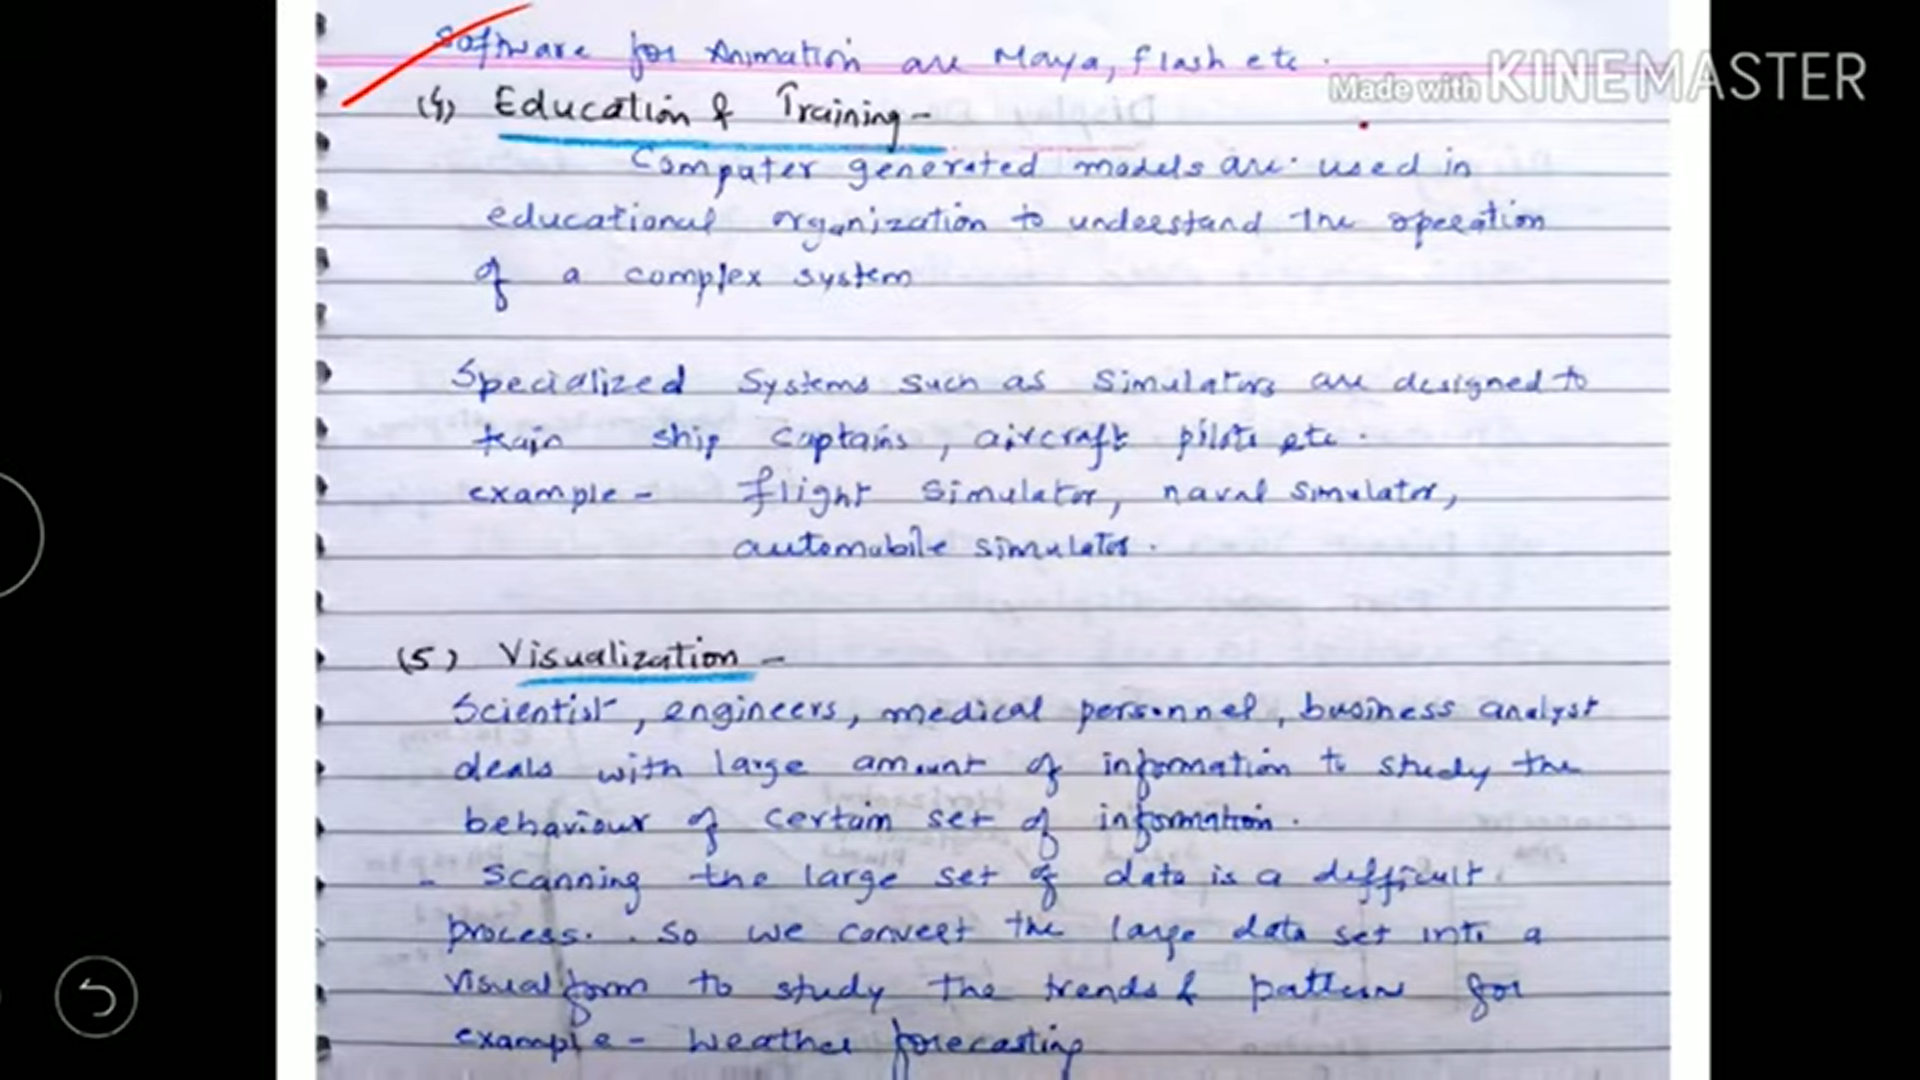 Software for Animation are Maya, flash etc.
Made with KINEMASTER
(4) Education & Training -
Computer generated models are used in
educational organization to understand the operation
of a complex system
Specialized Systems such as simulators are designed to
train ship captains, aircraft pilots etc.
example - flight simulator, naval simulator,
automobile simulator.
(5) Visualization -
Scientist, engineers, medical personnel, business analyst
deals with large amount of information to study the
behaviour of certain set of information.
- Scanning the large set of data is a difficult
process. So we convert the large data set into a
visual form to study the trends & pattern for
example - Weather forecasting